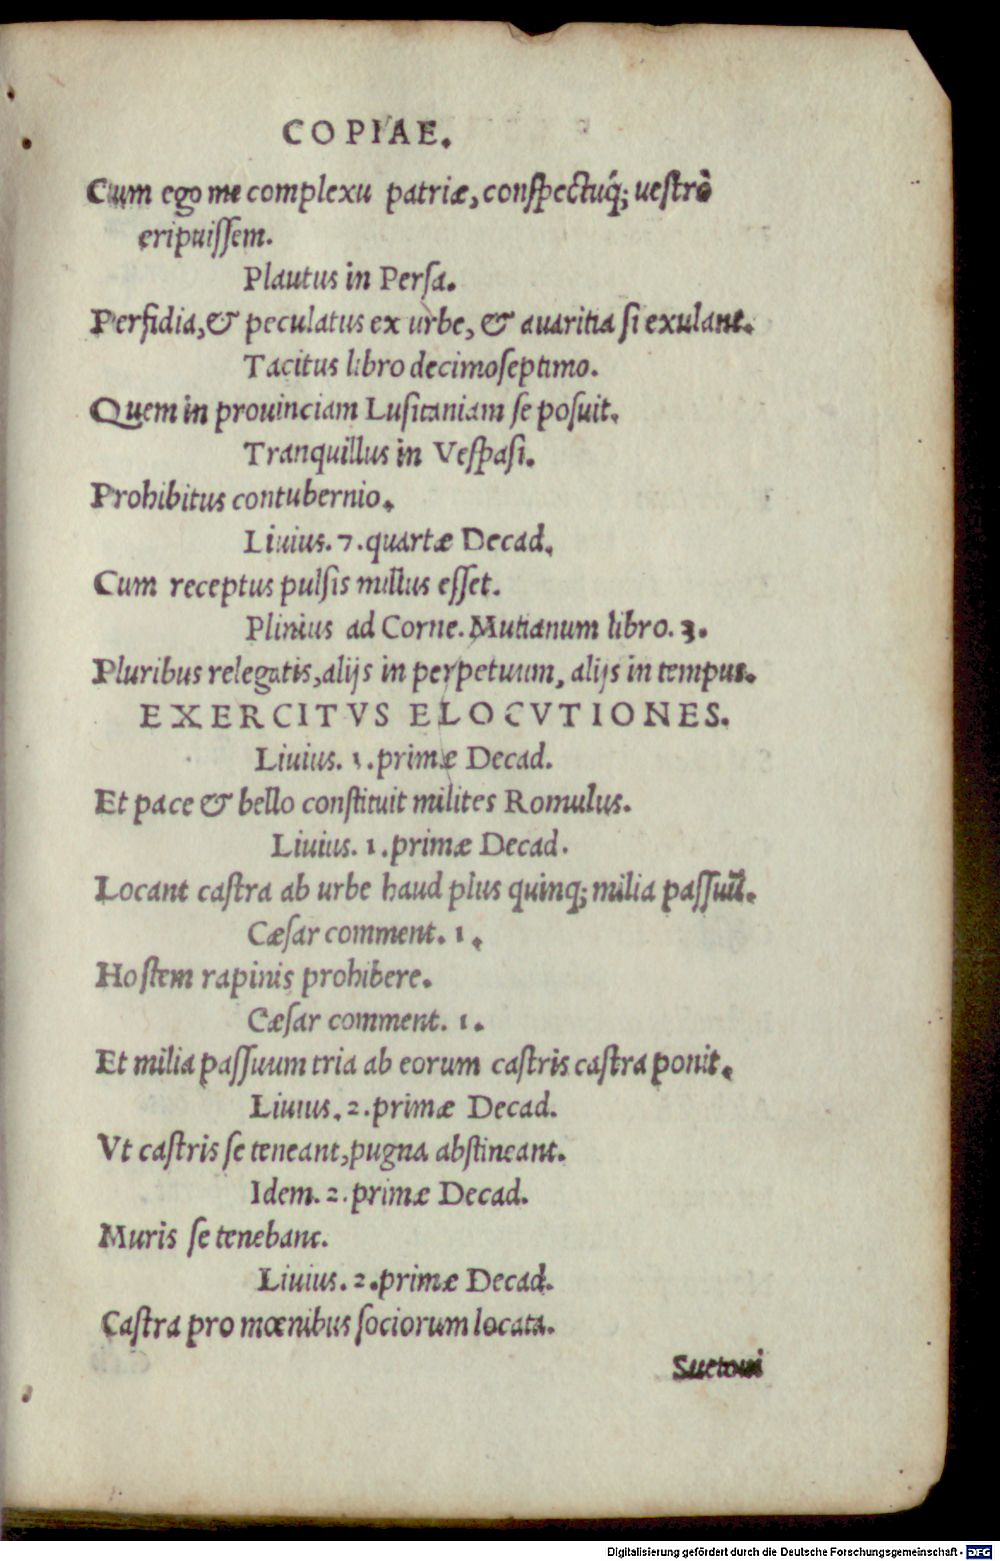 COPIAE.
Cum ego me complexu patriæ, conſpectuq́; ueſtrō
eripuiſſem.
Plautus in Perſa.
Perfidia,& peculatus ex urbe, & auaritia ſi exulant.
Tacitus libro decimoſeptimo.
Quem in prouinciam Luſitaniam ſe poſuit.
Tranquillus in Veſpaſi.
Prohibitus contubernio.
Liuius. 7. quartæ Decad.
Cum receptus pulſis nullus eſſet.
Plinius ad Corne. Mutianum libro. 3.
Pluribus relegatis, alijs in perpetuum, alijs in tempus.
EXERCITVS ELOCVTIONES.
Liuius. 1. primæ Decad.
Et pace & bello conſtituit milites Romulus.
Liuius. 1. primæ Decad.
Locant caſtra ab urbe haud plus quinq; milia paſſuũ.
Cæſar comment. 1.
Hoſtem rapinis prohibere.
Cæſar comment. 1.
Et milia paſſuum tria ab eorum caſtris caſtra ponit.
Liuius. 2. primæ Decad.
Vt caſtris ſe teneant, pugna abſtineant.
Idem. 2. primæ Decad.
Muris ſe tenebant.
Liuius. 2. primæ Decad.
Caſtra pro mœnibus ſociorum locata.
Suetoni
Digitalisierung gefördert durch die Deutsche Forschungsgemeinschaft - DFG